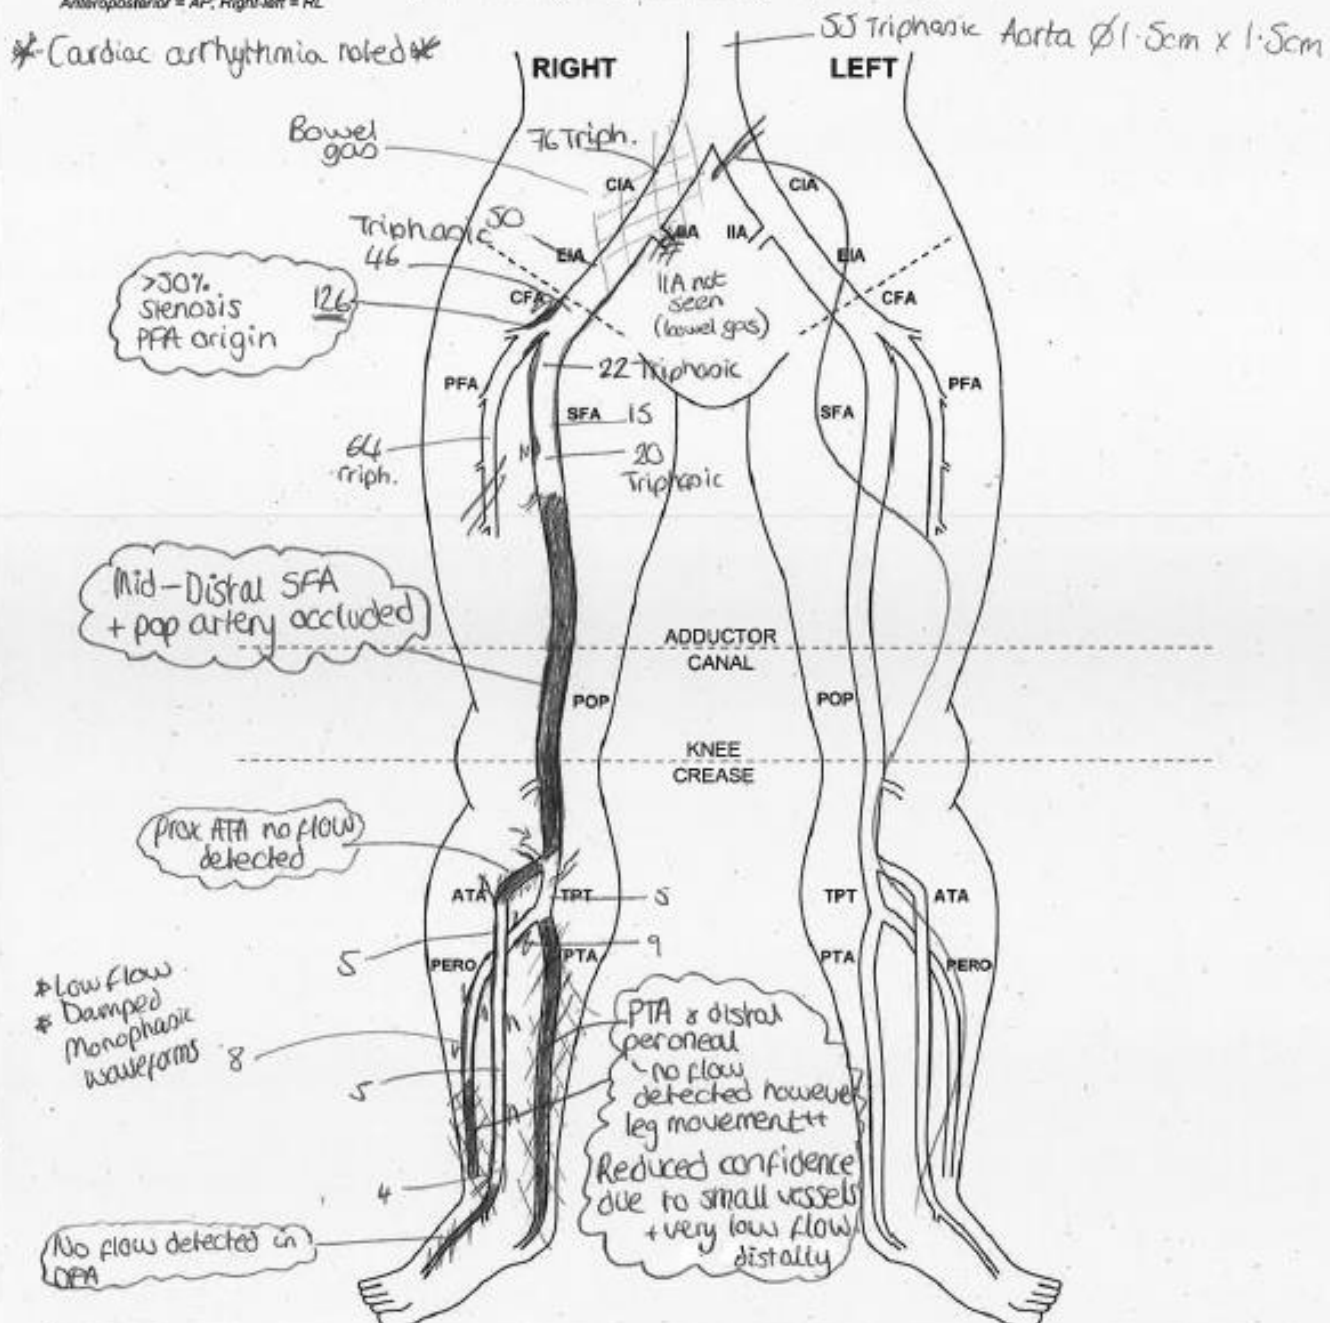 Anteroposterior = AP, Right-left = RL
* Cardiac arrhythmia noted *
55 Triphasic Aorta Ø1.5cm x 1.5cm
RIGHT
LEFT
Bowel
gas
76 Triph.
CIA
CIA
Triphasic 50
46
EIA
IIA
IIA
EIA
IIA not
seen
(bowel gas)
>50%
stenosis 126
PFA origin
CFA
CFA
22 Triphasic
PFA
PFA
SFA
15
SFA
64
Triph.
20
Triphasic
Mid-Distal SFA
+ pop artery occluded
ADDUCTOR
CANAL
POP
POP
KNEE
CREASE
Prox ATA no flow
detected
ATA
TPT
5
TPT
ATA
5
9
PERO
PTA
PTA
PERO
* Low flow
* Damped
Monophasic
waveforms
8
5
PTA & distal
peroneal
- no flow
detected however
leg movement++
Reduced confidence
due to small vessels
+ very low flow
distally
4
No flow detected in
DPA